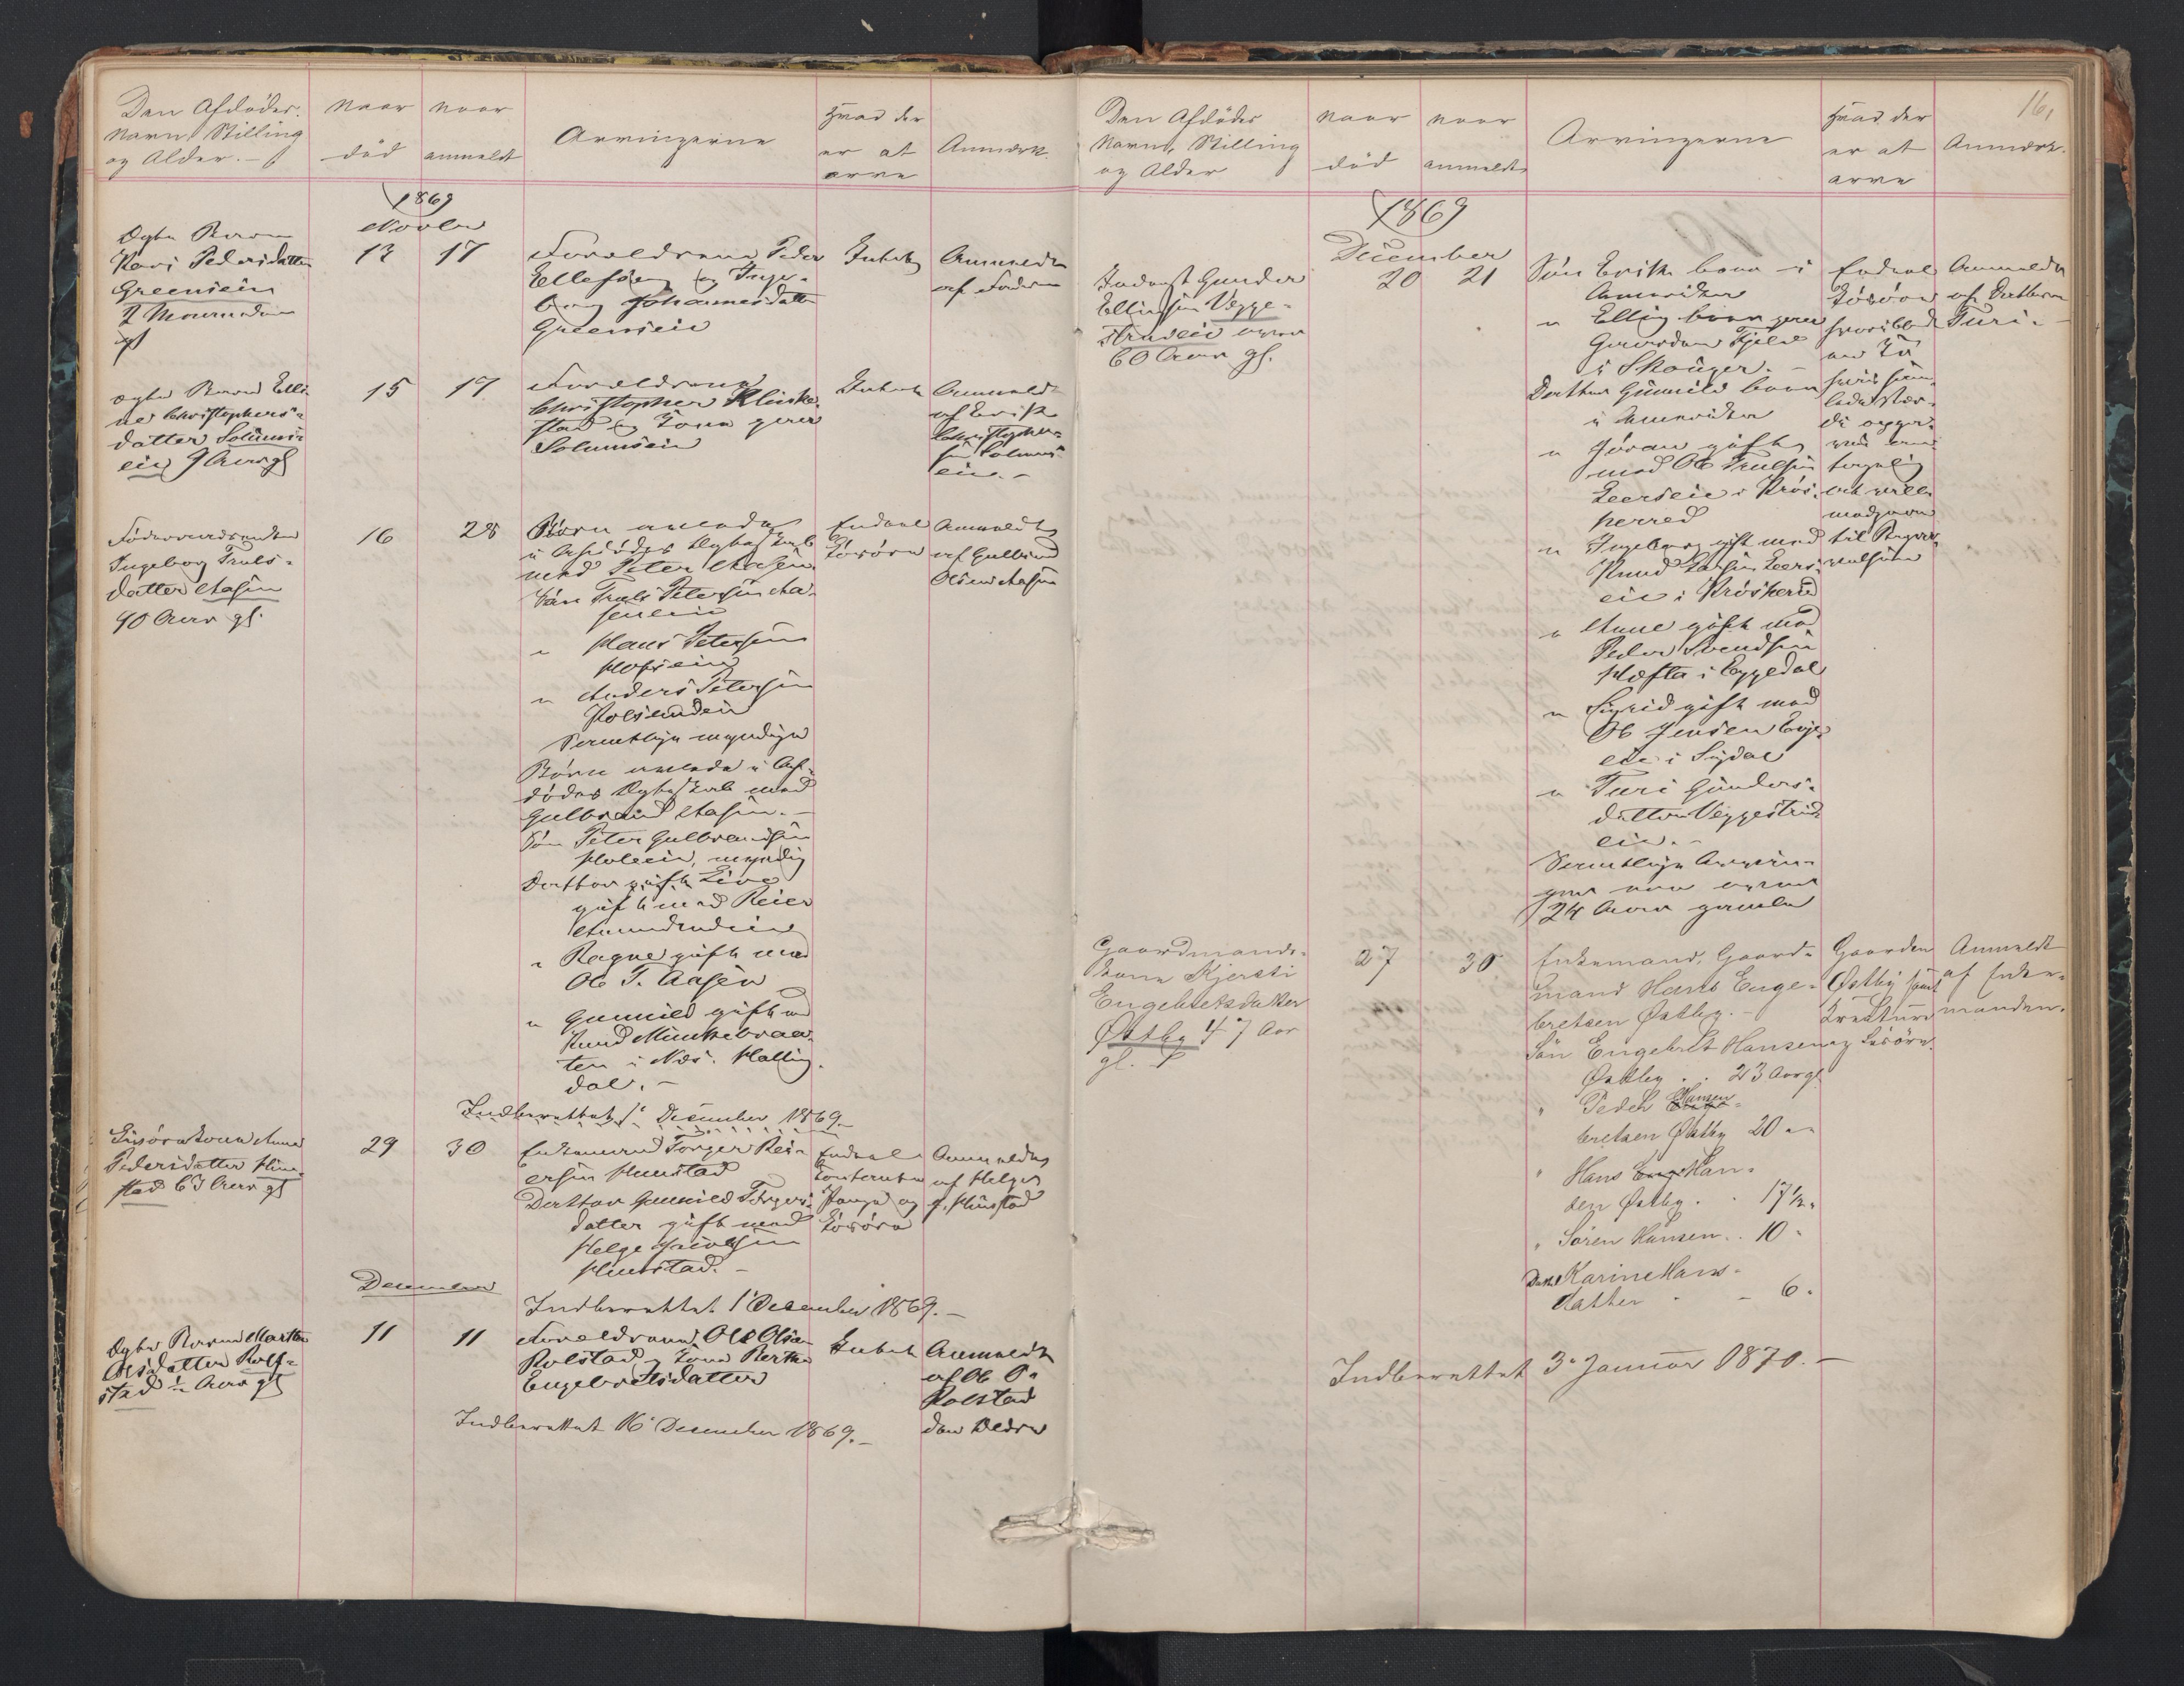 Den Afdødes
Navn, Stilling
og Alder. -
Naar
død
naar
anmeldt
Arvingerne
Hvad der
er at
arve
Anmærk.
1869
Novbr
Ægte Barn
Kari Pedersdatter
Greensein
2 Maaneder
gl
13
17
Foreldrene Peder
Ellefsen og Inge-
borg Johannesdatter
Greensein
Intet
Anmeldt
af Faderen
ægte Barn Elli-
ne Christophers-
datter Solums-
ein 9 Aar gl
15
17
Foreldrene
Christopher Klinke-
stad og Kone
Solumsein
Intet
Anmeldt
af Erik
Christopher-
sen Solums-
ein. -
Ingeborg Truls-
datter Aasen
90 Aar gl.
16
28
Børn avlede
i Afdødes Ægteskab
med Peter Aasen
Søn Truls Petersen Aa-
senein
" Hans Petersen
Hofsein
" Anders Petersen
Samtlige myndige
Børn avlede i Af-
dødes Ægteskab med
Gulbrand Aasen. -
Søn Peter Gulbrandsen
Holeein, myndig
Datter gift Live
gift med Reier
Amundrudein
" Ragne gift med
Ole T. Aasen
" Gunild gift med
Knud Minkebraa-
ten i Næs. Halling-
dal. -
Endeel
Løsøre
Anmeldt
af Gulbrand
Olsen Aasen
Indberettet 1' December 1869. -
Anne
Pedersdatter Hun-
stad 63 Aar gl
29
30
Enkemand Torger Rei-
ersen Hunstad
Datter Gunild Torgers-
datter gift med
Helge
Hunstad. -
Endeel
Contante
Penge og
Løsøre
Anmeldt
af Helge
Hunstad
December
Indberettet 1' December 1869. -
Ægte Barn Marthe
Olsdatter Rolf-
stad ½ Aar gl
11
11
Foreldrene Ole Olsen
Rolstad og Kone Berthe
Engebretsdatter
Intet
Anmeldt
af Ole O.
Rolstad
den Ældre
Indberettet 16' December 1869. -
16,
Den Afdødes
Navn, Stilling
og Alder
Naar
død
naar
anmeldt
Arvingerne
Hvad der
er at
arve
Anmærk.
1869
December
Inderst Gunder
Ellingsen Vegge-
strudein
60 Aar gl.
20
21
Søn Erik boer i
Amerika
" Elling boer paa
Gaarden Fjeld
i Skouger. -
Datter Gunild boer
i Amerika
" Jøran gift
med Ole Trulsen
Leersein i Krøs-
herred
" Ingeborg gift med
Knud Larsen Leers-
ein i Krøsherred
" Anne gift med
Peder Svendsen
Hæfta i Eggedal
" Sigrid gift med
Ole Jensen
ein i Sigdal
" Turi Gunders-
datter Veggestrud-
ein. -
Samtlige Arvin-
ger ere over
24 Aar gamle
Endeel
Løsøre
Anmeldt
af Datteren
Turi. -
Gaardmands-
kone Kjersti
Engebretsdatter
Østby 47 Aar
gl.
27
30
Enkemand, Gaard-
mand Hans Enge-
bretsen Østby. -
Søn Engebret Hansen
Østby . . 23 Aar gl
" Peder Hansen
bretsen Østby 20 "
" Hans Han-
sen Østby . . 17½ "
" Søren Hansen . . 10 "
Datter Karine Hans-
datter " - 6 "
Gaarden
Østby samt
Kreature
og Løsøre.
Anmeldt
af Enke-
manden.
Indberettet 3' Januar 1870. -